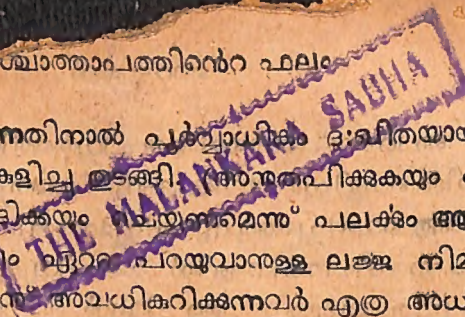 ശ്ചാത്താപത്തിൻെറ ഫലം
ന്നതിനാൽ പൂർവ്വാധികം ദുഃഖിതയായ
കുളിച്ചു തുടങ്ങി. അനുതപിക്കുകയും
ദിക്കയും ചെയ്യണമെന്നു് പലക്കും
ഏറ്റു പറയുവാനുള്ള ലജ്ജ നിമ
അവധികുറിക്കുന്നവർ എത്ര അധ
THE MALANKARA SABHA